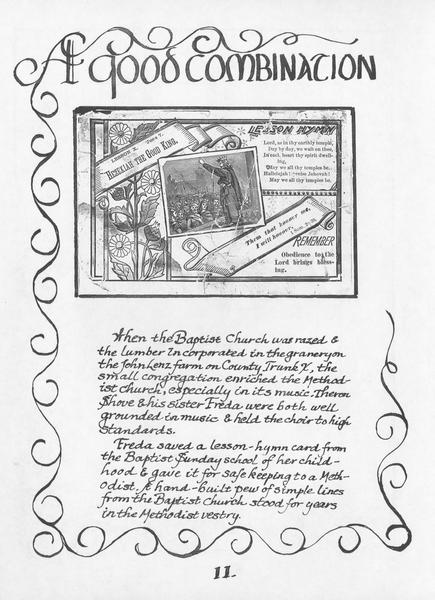 A Good Combination
LESSON X. JUNE 7.
HEZEKIAH THE GOOD KING.
LESSON HYMN
Lord, as in thy earthly temple,
Day by day, we wait on thee,
In each heart thy spirit dwell-
ing,
May we all thy temples be.
Hallelujah! Praise Jehovah!
May we all thy temples be.
Them that honour me,
I will honour.
REMEMBER
Obedience to the
Lord brings bless-
ing.
When the Baptist Church was razed &
the lumber incorporated in the granery on
the John Lenz farm on County Trunk X, the
small congregation enriched the Method-
ist church, especially in its music. Theron
Shove & his sister Freda were both well
grounded in music & held the choir to high
standards.
Freda saved a lesson-hymn card from
the Baptist Sunday school of her child-
hood & gave it for safe keeping to a Meth-
odist. A hand-built pew of simple lines
from the Baptist Church stood for years
in the Methodist vestry.
11.